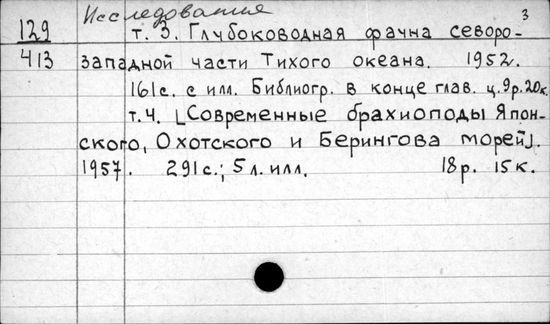 Исследования 3
129 т. 3. Глубоководная фауна северо-
413 западной части Тихого океана. 1952.
161с. с илл. Библиогр. в конце глав. ц.9р.20к.
т.4. [Современные брахиоподы Япон-
ского, Охотского и Берингова морей].
1957. 291с.; 5л. илл. 18р. 15к.